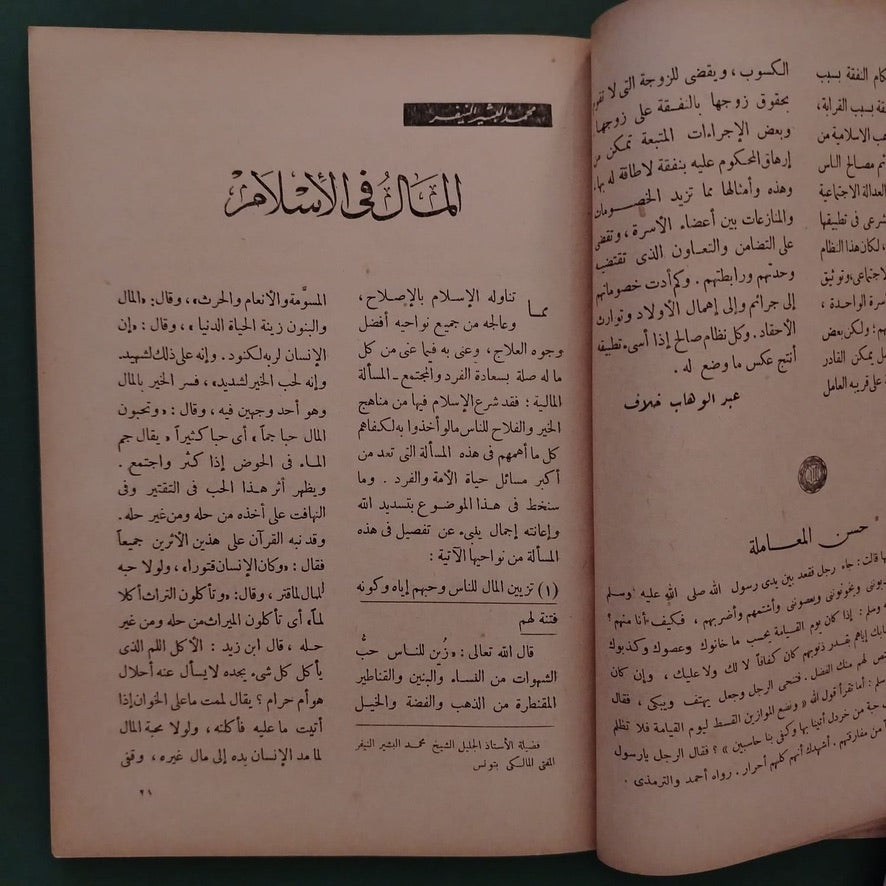 كام النفقة بسبب
قة بسبب القرابة،
هب الاسلامية من
ئم مصالح الناس
العدالة الاجتماعية
شرعى فى تطبيقها
، لكان هذا النظام
لاجتماعى، وتوثيق
سرة الواحدة ،
هم؛ ولكن بعض
ل يمكن القادر
ة على قريبه العامل
الكسوب ، ويقضى للزوجة التى لا تقوم
بحقوق زوجها بالنفقة على زوجها
وبعض الإجراءات المتبعة تمكن من
إرهاق المحكوم عليه بنفقة لا طاقة له بها.
وهذه وأمثالها مما تزيد الخصومات
والمنازعات بين أعضاء الأسرة ، وتقضى
على التضامن والتعاون الذى تقتضيه
وحدتهم ورابطتهم . وكم أدت خصوماتهم
إلى جرائم وإلى إهمال الأولاد وتوارث
الأحقاد . وكل نظام صالح إذا أسىء تطبيقه
أنتج عكس ما وضع له .
عبد الوهاب خلاف
حسن المعاملة
ها قالت : جاء رجل فقعد بين يدى رسول الله صلى الله عليه وسلم
يونى ويخونونى ويعصوننى وأشتمهم وأضربهم ، فكيف أنا منهم ؟
وسلم : إذا كان يوم القيامة يحسب ما خانوك وعصوك وكذبوك
ابك إياهم بقدر ذنوبهم كان كفافاً لا لك ولا عليك ، وإن كان
تص لهم منك الفضل . فتنحى الرجل وجعل يهتف ويبكى ، فقال
سلم : أما تقرأ قول الله « ونضع الموازين القسط ليوم القيامة فلا تظلم
حبة من خردل أتينا بها وكفى بنا حاسبين » ؟ فقال الرجل يا رسول
اً من مفارقتهم . أشهدك أنهم كلهم أحرار . رواه أحمد والترمذى .
محمد البشير النيفر
المال فى الإسلام
مما تناوله الإسلام بالإصلاح ،
وعالجه من جميع نواحيه أفضل
وجوه العلاج ، وعنى به فيما عنى من كل
ما له صلة بسعادة الفرد والمجتمع ـ المسألة
المالية : فقد شرع الإسلام فيها من مناهج
الخير والفلاح للناس ما لو أخذوا به لكفاهم
كل ما أهمهم فى هذه المسألة التى تعد من
أكبر مسائل حياة الأمة والفرد . وما
سنخط فى هذا الموضوع بتسديد الله
وإعانته إجمال ينبىء عن تفصيل فى هذه
المسألة من نواحيها الآتية :
(١) تزيين المال للناس وحبهم إياه وكونه
فتنة لهم
قال الله تعالى : «زُيِّن للناس حبُّ
الشهوات من النساء والبنين والقناطير
المقنطرة من الذهب والفضة والخيل
فضيلة الأستاذ الجليل الشيخ محمد البشير النيفر
المفتى المالكى بتونس
المسوَّمة والأنعام والحرث» ، وقال : «المال
والبنون زينة الحياة الدنيا» ، وقال : «إن
الإنسان لربه لكنود . وإنه على ذلك لشهيد.
وإنه لحب الخير لشديد» ، فسر الخير بالمال
وهو أحد وجهين فيه ، وقال : «وتحبون
المال حبا جماً» أى حبا كثيراً «يقال جم
الماء فى الحوض إذا كثر واجتمع .
ويظهر أثر هذا الحب فى التقتير وفى
التهافت على أخذه من حله ومن غير حله.
وقد نبه القرآن على هذين الأثرين جميعاً
فقال : «وكان الإنسان قتورا» ، ولولا حبه
لمال لما قتر ، وقال : «وتأكلون التراث أكلا
لماً» أى تأكلون الميراث من حله ومن غير
حله ، قال ابن زيد : الأكل اللم الذى
يأكل كل شىء يجده لا يسأل عنه أحلال
هو أم حرام ؟ يقال لممت ما على الخوان إذا
أتيت ما عليه فأكلته ، ولولا محبة المال
لما مد الإنسان يده إلى مال غيره ، وفى
٢١